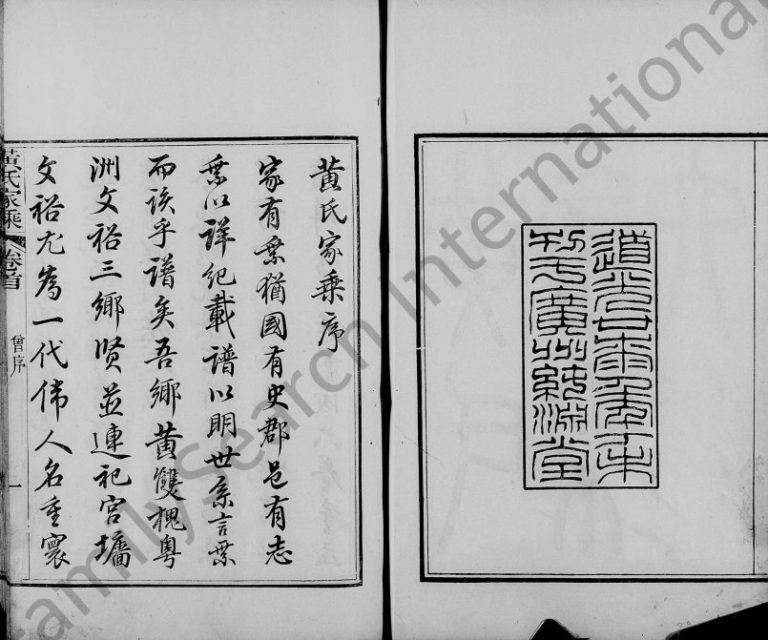 道光廿年未
刊于廣州純淵堂
黃氏家乘序
家有乘猶國有史郡邑有志
乘以詳紀載譜以明世系言乘
而該乎譜矣吾鄉黃雙槐粵
洲文裕三鄉賢並連祀宮牆
文裕尤為一代偉人名重寰
黃氏家乘 卷首 曾序 一
FamilySearch International